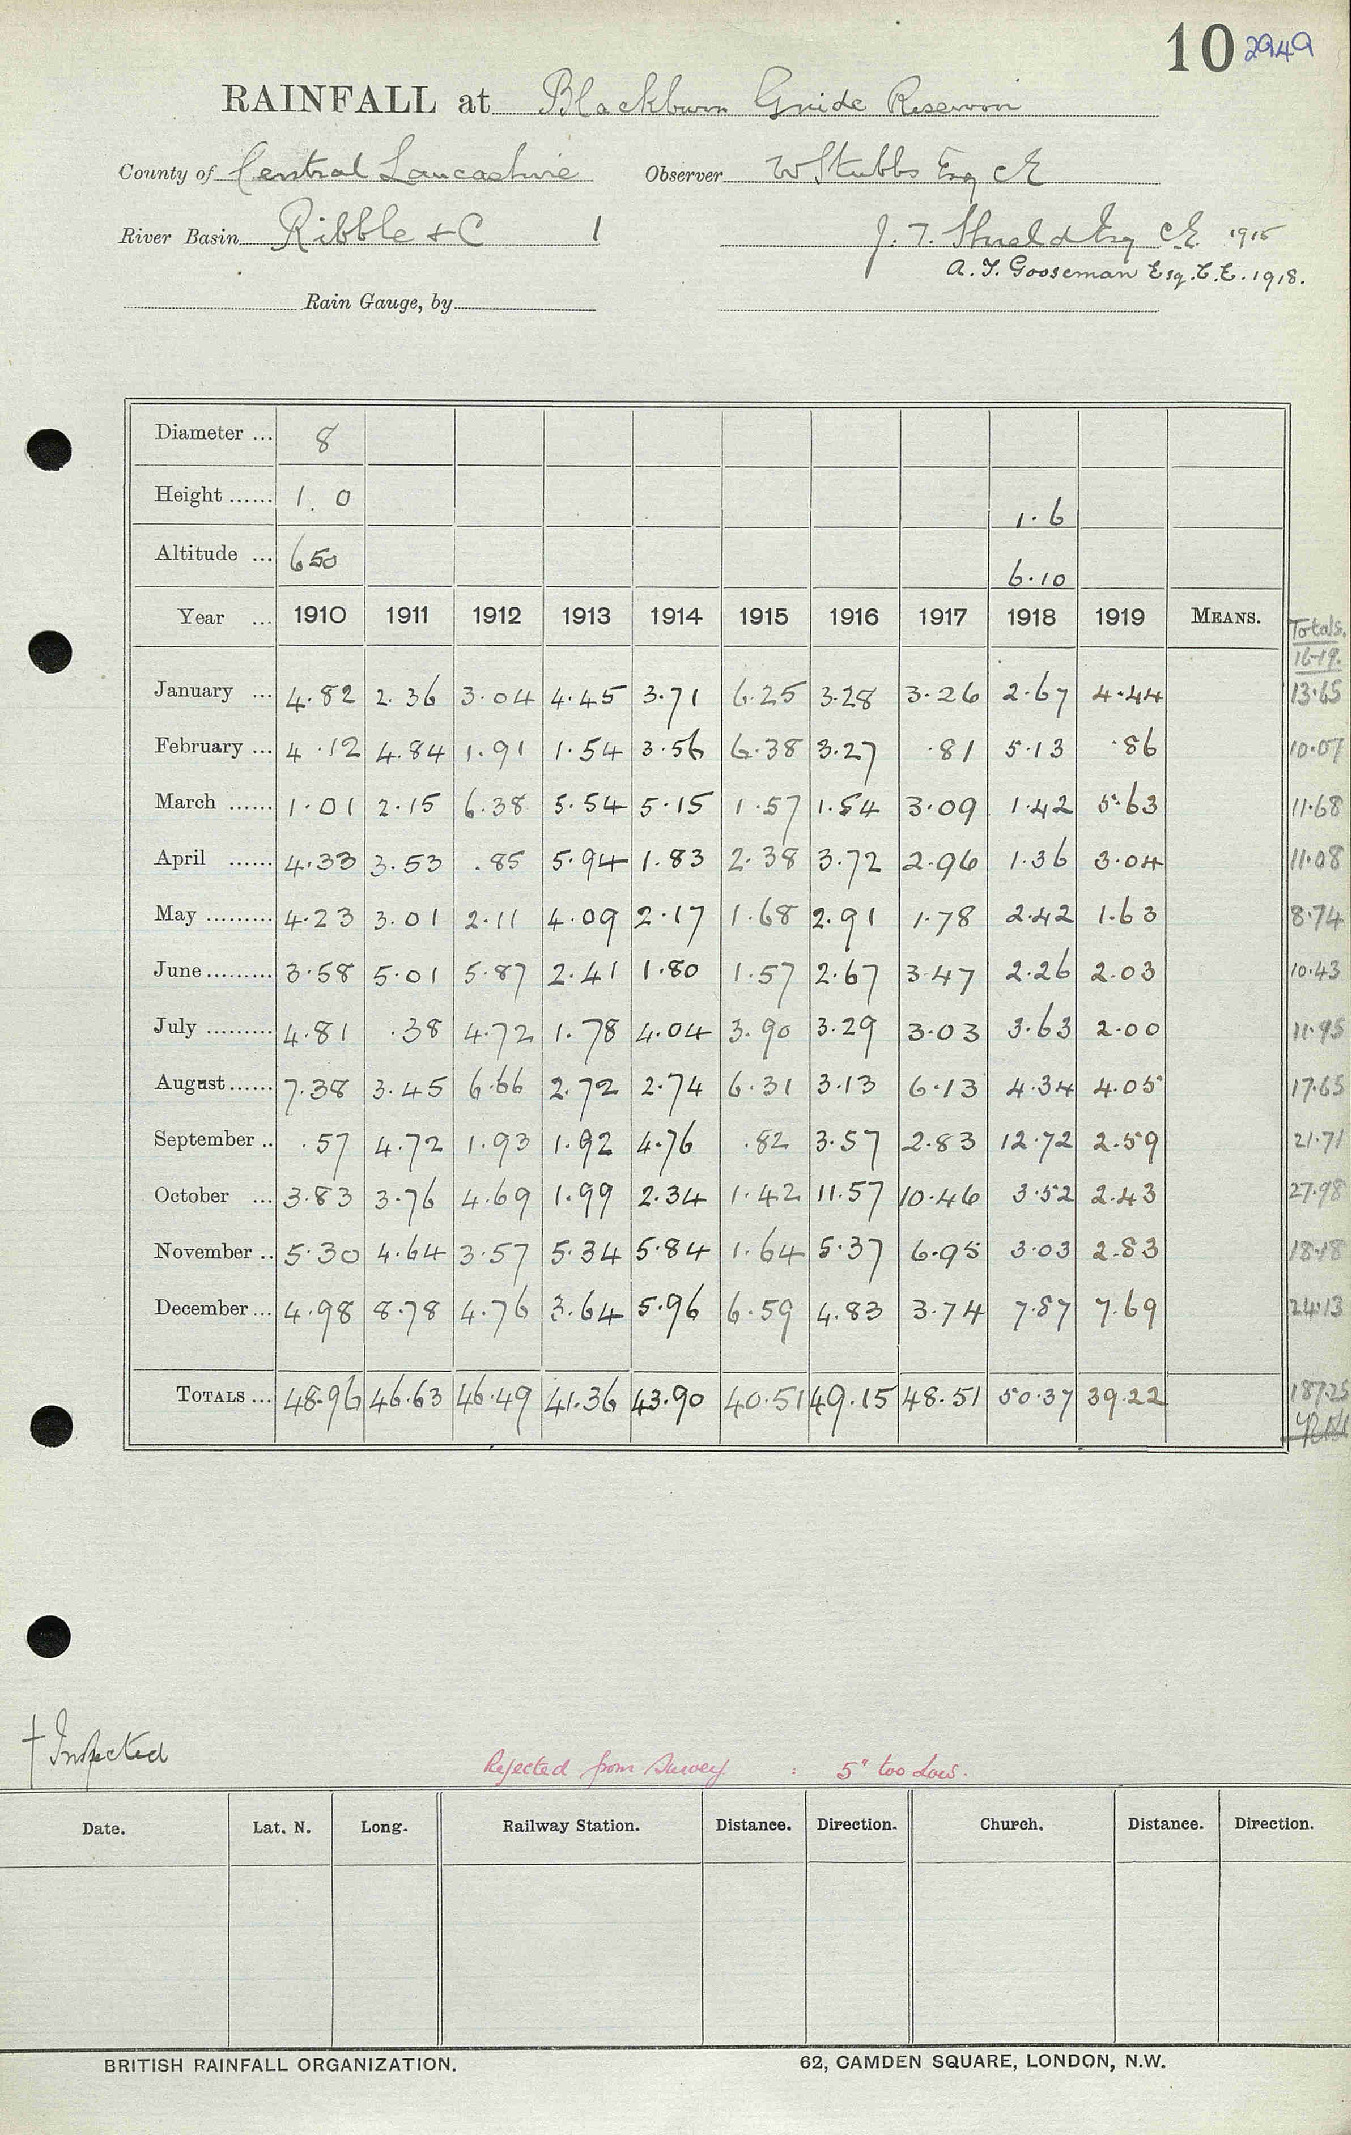 10 2949
RAINFALL at Blackburn Guide Reservoir
County of Central Lancashire Observer W Stubbs Esq CE
River Basin Ribble & C 1 J. T. Esq CE. 1915
A. T. Gooseman Esq. C.E. 1918.
Rain Gauge, by
Diameter ... 8
Height ...... 1. 0 1.6
Altitude ... 650 6.10
Year ... 1910 1911 1912 1913 1914 1915 1916 1917 1918 1919 MEANS. Totals.
16-19.
January ... 4.82 2.36 3.04 4.45 3.71 6.25 3.28 3.26 2.67 4.44 13.65
February ... 4.12 4.84 1.91 1.54 3.56 6.38 3.27 .81 5.13 .86 10.07
March ...... 1.01 2.15 6.38 5.54 5.15 1.57 1.54 3.09 1.42 5.63 11.68
April ...... 4.33 3.53 .85 5.94 1.83 2.38 3.72 2.96 1.36 3.04 11.08
May ......... 4.23 3.01 2.11 4.09 2.17 1.68 2.91 1.78 2.42 1.63 8.74
June ......... 3.58 5.01 5.87 2.41 1.80 1.57 2.67 3.47 2.26 2.03 10.43
July ......... 4.81 .38 4.72 1.78 4.04 3.90 3.29 3.03 3.63 2.00 11.95
August ...... 7.38 3.45 6.66 2.72 2.74 6.31 3.13 6.13 4.34 4.05 17.65
September .. .57 4.72 1.93 1.92 4.76 .82 3.57 2.83 12.72 2.59 21.71
October ... 3.83 3.76 4.69 1.99 2.34 1.42 11.57 10.46 3.52 2.43 27.98
November .. 5.30 4.64 3.57 5.34 5.84 1.64 5.37 6.95 3.03 2.83 18.18
December ... 4.98 8.78 4.76 3.64 5.96 6.59 4.83 3.74 7.87 7.69 24.13
TOTALS ... 48.96 46.63 46.49 41.36 43.90 40.51 49.15 48.51 50.37 39.22 187.25
† Inspected
Rejected from Survey : 5" too Low.
Date. Lat. N. Long. Railway Station. Distance. Direction. Church. Distance. Direction.
BRITISH RAINFALL ORGANIZATION. 62, CAMDEN SQUARE, LONDON, N.W.